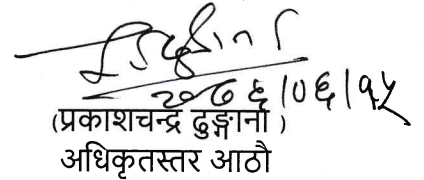 २०७६।०६।१५
(प्रकाशचन्द्र ढुङ्गाना )
अधिकृतस्तर आठौ